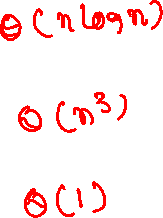 Θ(n log n)
Θ(n³)
Θ(1)